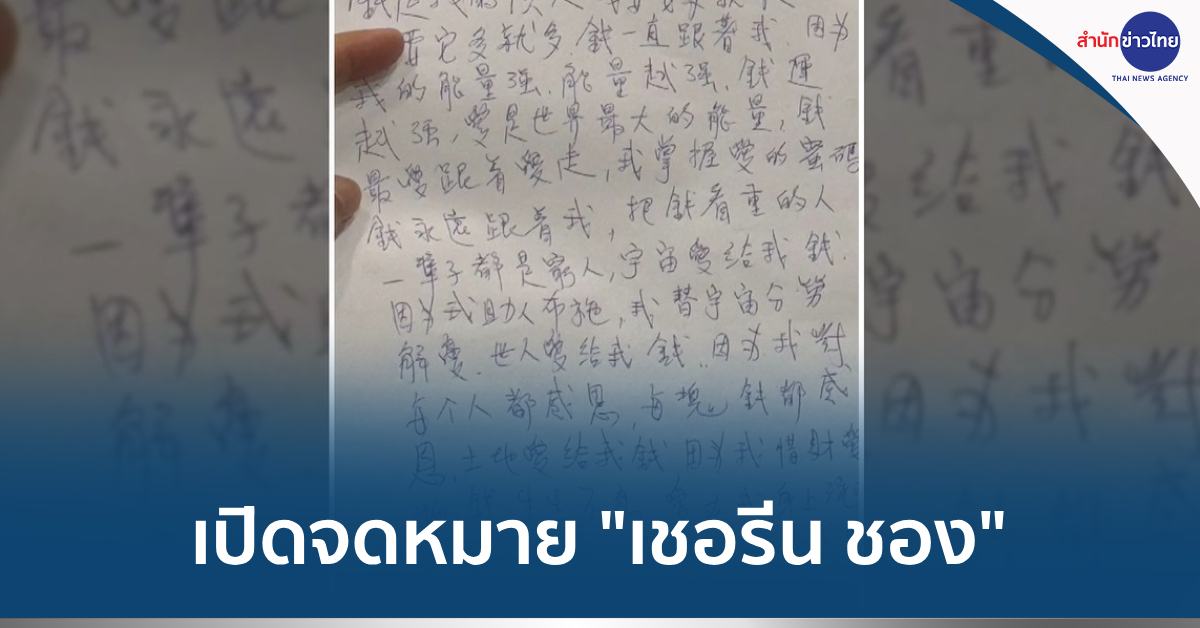 สำนักข่าวไทย
THAI NEWS AGENCY
要它多就多.錢一直跟著我.因为
我的能量强.能量越强.錢運
越强,愛是世界最大的能量,錢
最愛跟着愛走,我掌握愛的密碼
錢永遠跟着我,把錢看重的人
一輩子都是窮人,宇宙愛給我錢.
因为我助人布施,我替宇宙分勞
解憂.世人愛给我錢.因为我對
每个人都感恩,每塊錢都感
恩.土地愛给我錢因为我惜財愛
เปิดจดหมาย "เชอรีน ชอง"